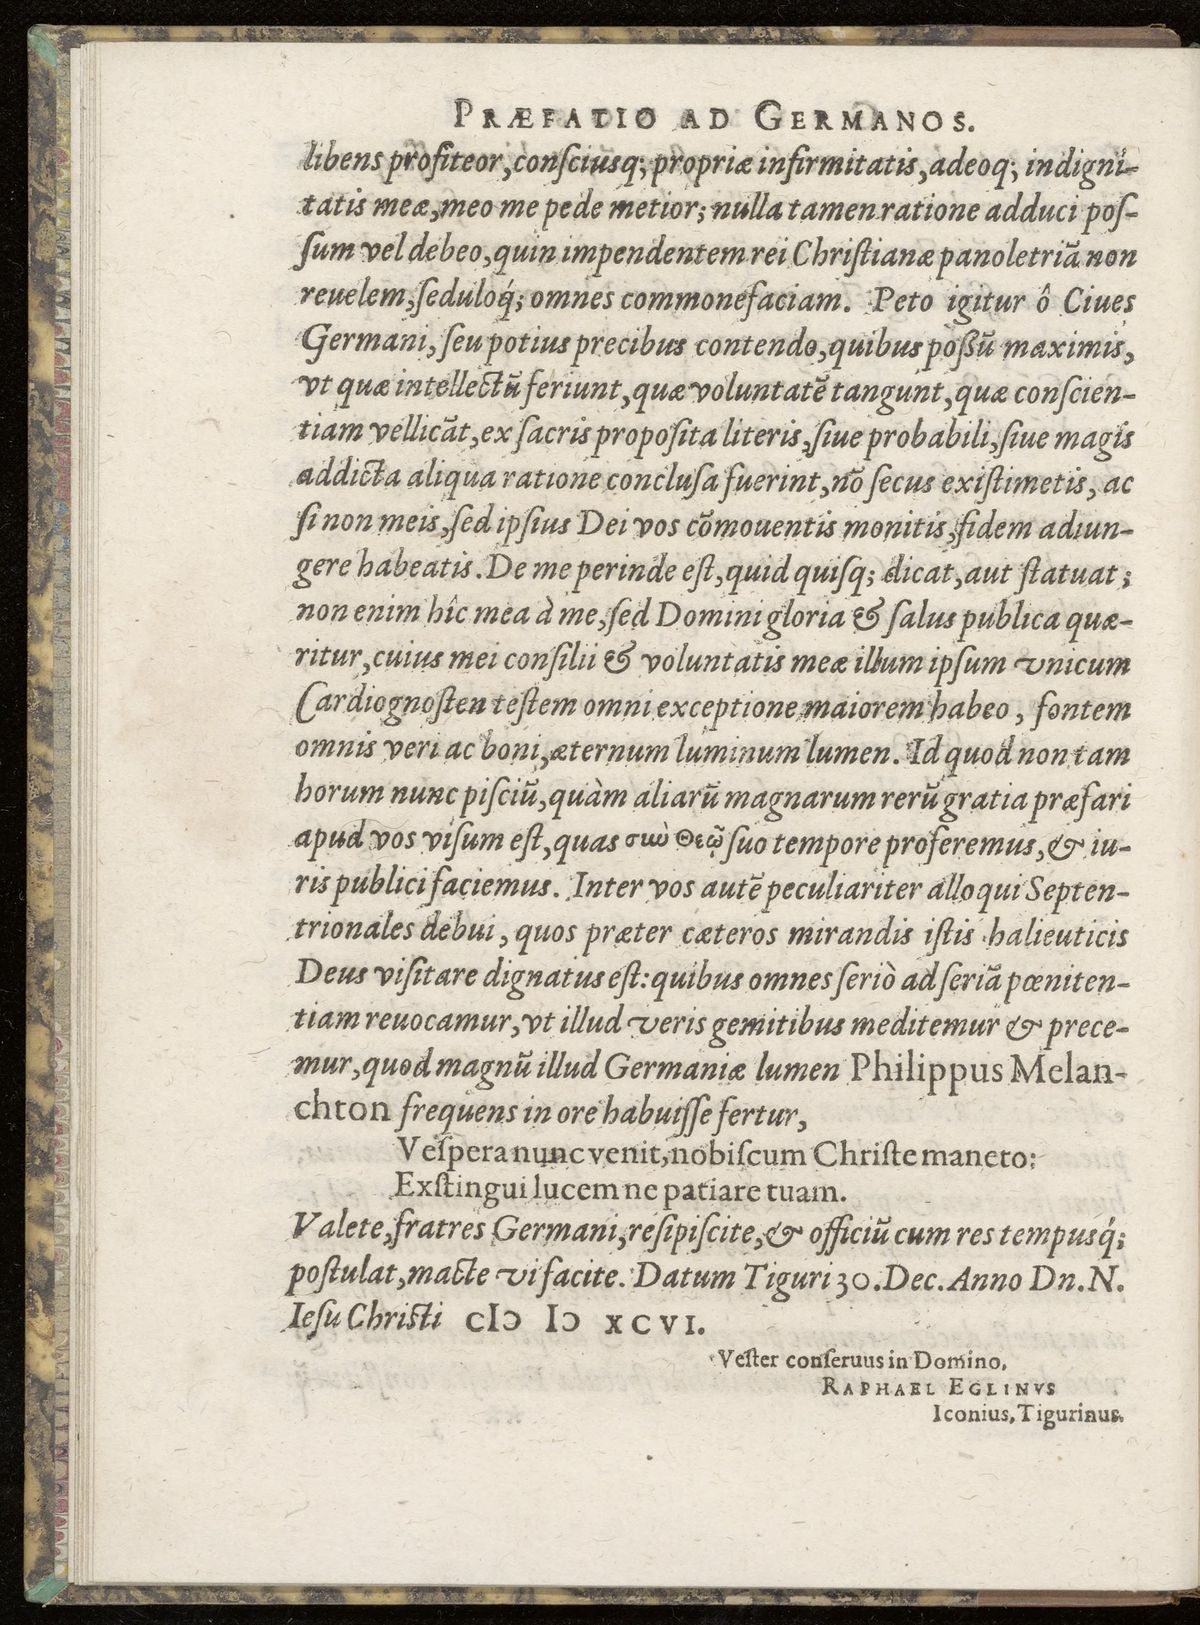 PRÆFATIO AD GERMANOS.
libens profiteor, conſciusq́; propriæ infirmitatis, adeoq́; indigni-
tatis meæ, meo me pede metior; nulla tamen ratione adduci poſ-
ſum vel debeo, quin impendentem rei Chriſtianæ panoletriã non
reuelem, ſeduloq́; omnes commonefaciam. Peto igitur ô Ciues
Germani, ſeu potius precibus contendo, quibus poßũ maximis,
vt quæ intellectũ feriunt, quæ voluntatẽ tangunt, quæ conſcien-
tiam vellicãt, ex ſacris propoſita literis, ſiue probabili, ſiue magis
addicta aliqua ratione concluſa fuerint, nõ ſecus exiſtimetis, ac
ſi non meis, ſed ipſius Dei vos cõmouentis monitis, fidem adiun-
gere habeatis. De me perinde eſt, quid quiſq; dicat, aut ſtatuat;
non enim hîc mea à me, ſed Domini gloria & ſalus publica quæ-
ritur, cuius mei conſilii & voluntatis meæ illum ipſum vnicum
Cardiognoſten teſtem omni exceptione maiorem habeo, fontem
omnis veri ac boni, æternum luminum lumen. Id quod non tam
horum nunc piſciũ, quàm aliarũ magnarum rerũ gratia præfari
apud vos viſum eſt, quas σὺν Θεῷ ſuo tempore proferemus, & iu-
ris publici faciemus. Inter vos autẽ peculiariter alloqui Septen-
trionales debui, quos præter cæteros mirandis iſtis halieuticis
Deus viſitare dignatus eſt: quibus omnes ſeriò ad ſeriã pœniten-
tiam reuocamur, vt illud veris gemitibus meditemur & prece-
mur, quod magnũ illud Germaniæ lumen Philippus Melan-
chton frequens in ore habuiſſe fertur,
Veſpera nunc venit, nobiſcum Chriſte maneto:
Exſtingui lucem ne patiare tuam.
Valete, fratres Germani, reſipiſcite, & officiũ cum res tempusq́;
poſtulat, macte vi facite. Datum Tiguri 30. Dec. Anno Dn. N.
Ieſu Chriſti cIↄ Iↄ XCVI.
Veſter conſeruus in Domino,
RAPHAEL EGLINVS
Iconius, Tigurinus.